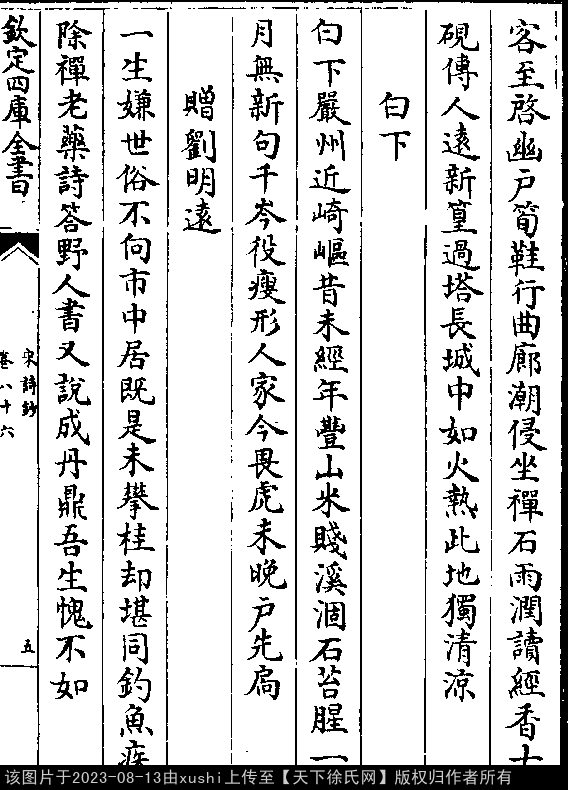 客至啓幽户筍鞋行曲廊潮侵坐禪石雨潤讀經香
硯傳人遠新篁過塔長城中如火熱此地獨清涼
白下
白下嚴州近崎嶇昔未經年豐山米賤溪涸石苔腥一
月無新句千岑役瘦形人家今畏虎未晚户先扃
贈劉明遠
一生嫌世俗不向市中居既是未攀桂却堪同釣魚疾
除禪老藥詩答野人書又說成丹鼎吾生愧不如
欽定四庫全書
宋詩鈔
卷八十六
五
该图片于2023-08-13由xushi上传至【天下徐氏网】版权归作者所有